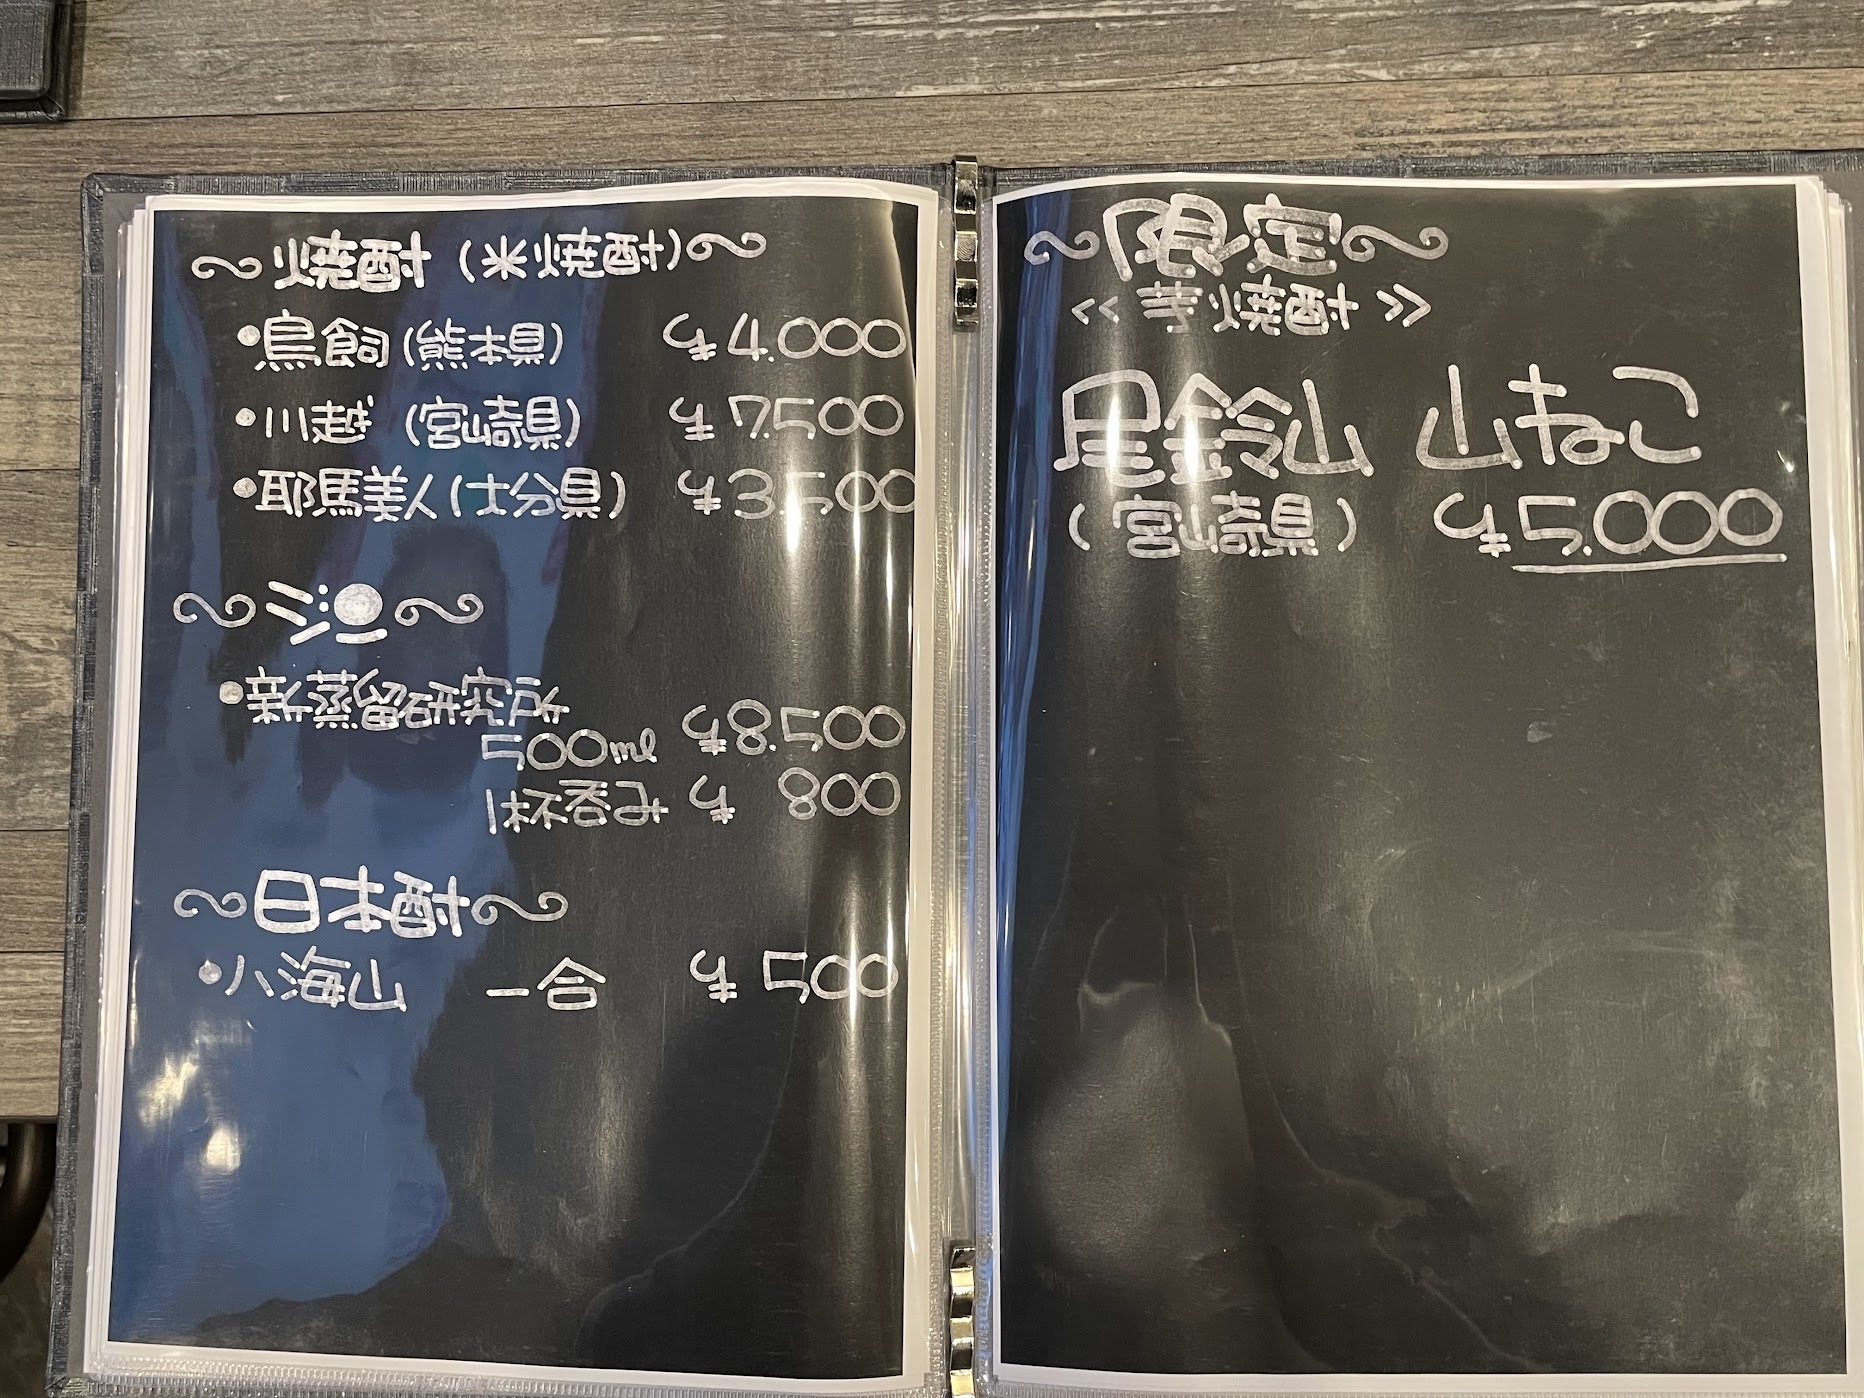 ～焼酎(米焼酎)～
•鳥飼(熊本県) ¥4.000
•川越(宮崎県) ¥7.500
•耶馬美人(大分県) ¥3.500
•新蒸留研究所
500ml ¥8.500
1杯呑み ¥800
～日本酎～
•八海山 一合 ¥500
～限定～
≪芋焼酎≫
尾鈴山 山ねこ
(宮崎県) ¥5.000